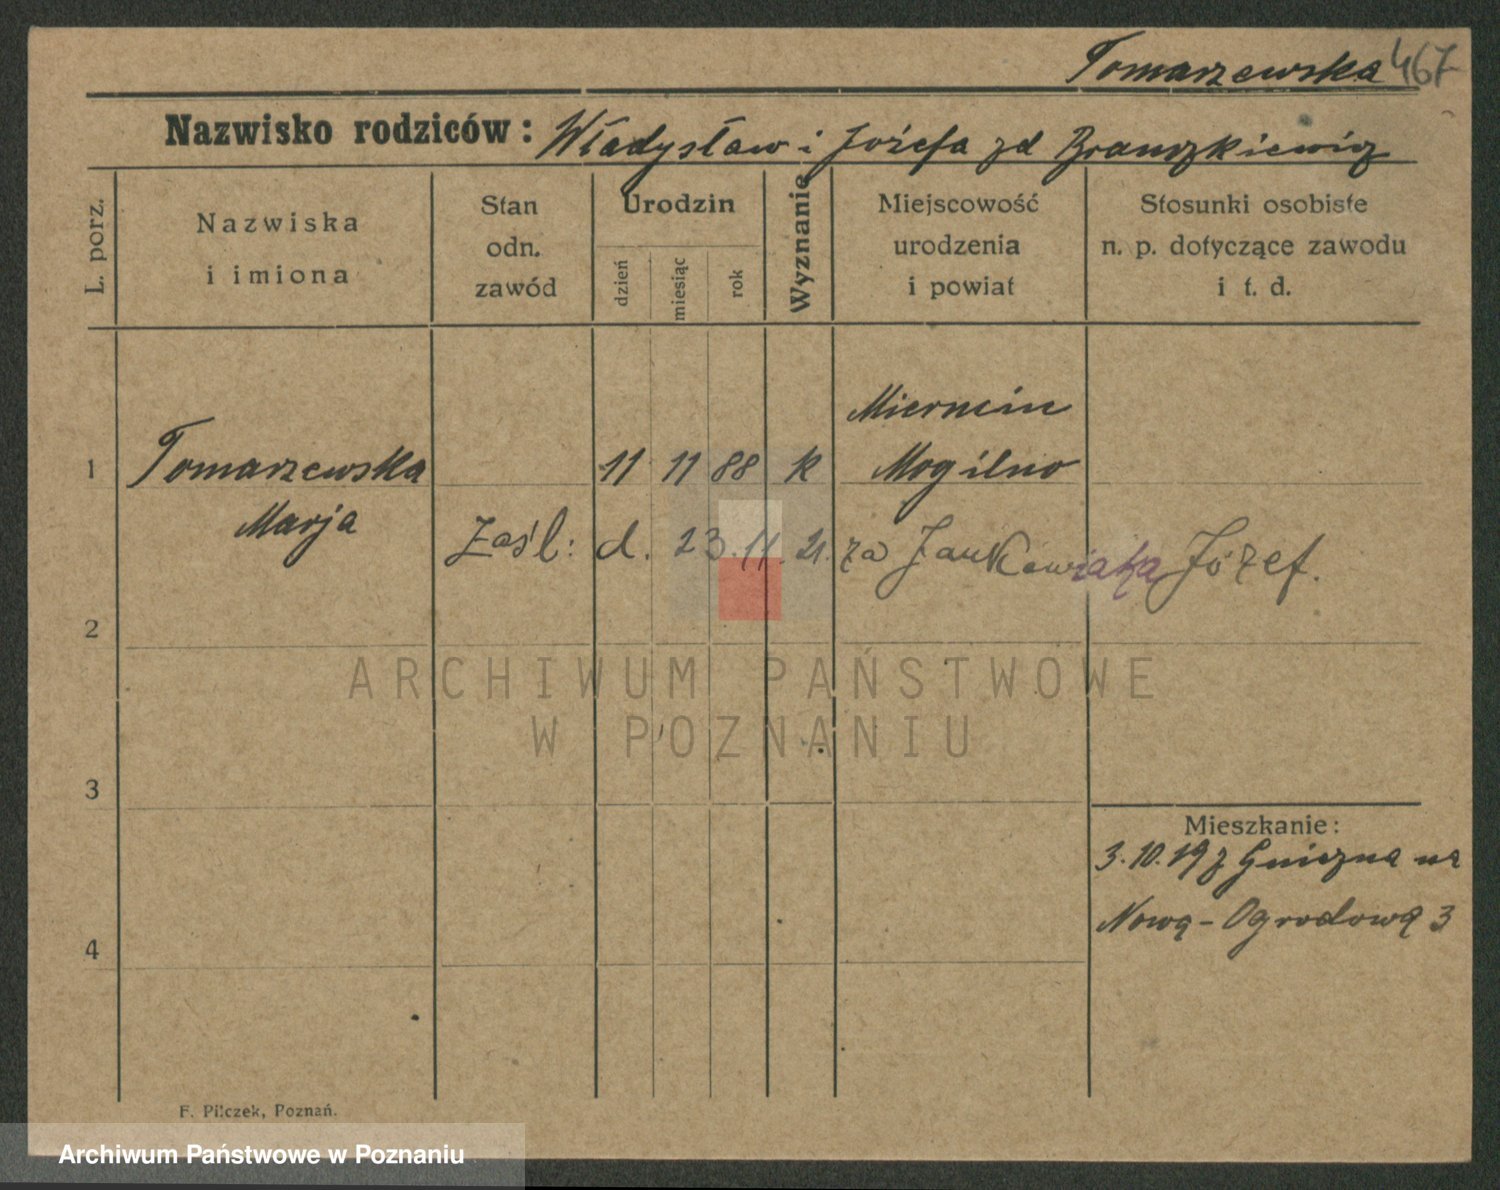 Tomarzewska 467
Nazwisko rodziców: Władysław i Józefa zd
L. porz.
Nazwiska i imiona
Stan odn. zawód
Urodzin
dzień
miesiąc
rok
Wyznanie
Miejscowość urodzenia i powiat
Stosunki osobiste n. p. dotyczące zawodu i t. d.
Miernin
1 Tomarzewska 11 11 88 k Mogilno
Marja
Zaśl: d. 23.11.21. za Jankowiaka Józef.
2
ARCHIWUM PAŃSTWOWE
W POZNANIU
3
Mieszkanie:
3.10.19 z Gniezna na
Nową-Ogrodową 3
4
F. Pilczek, Poznań.
Archiwum Państwowe w Poznaniu